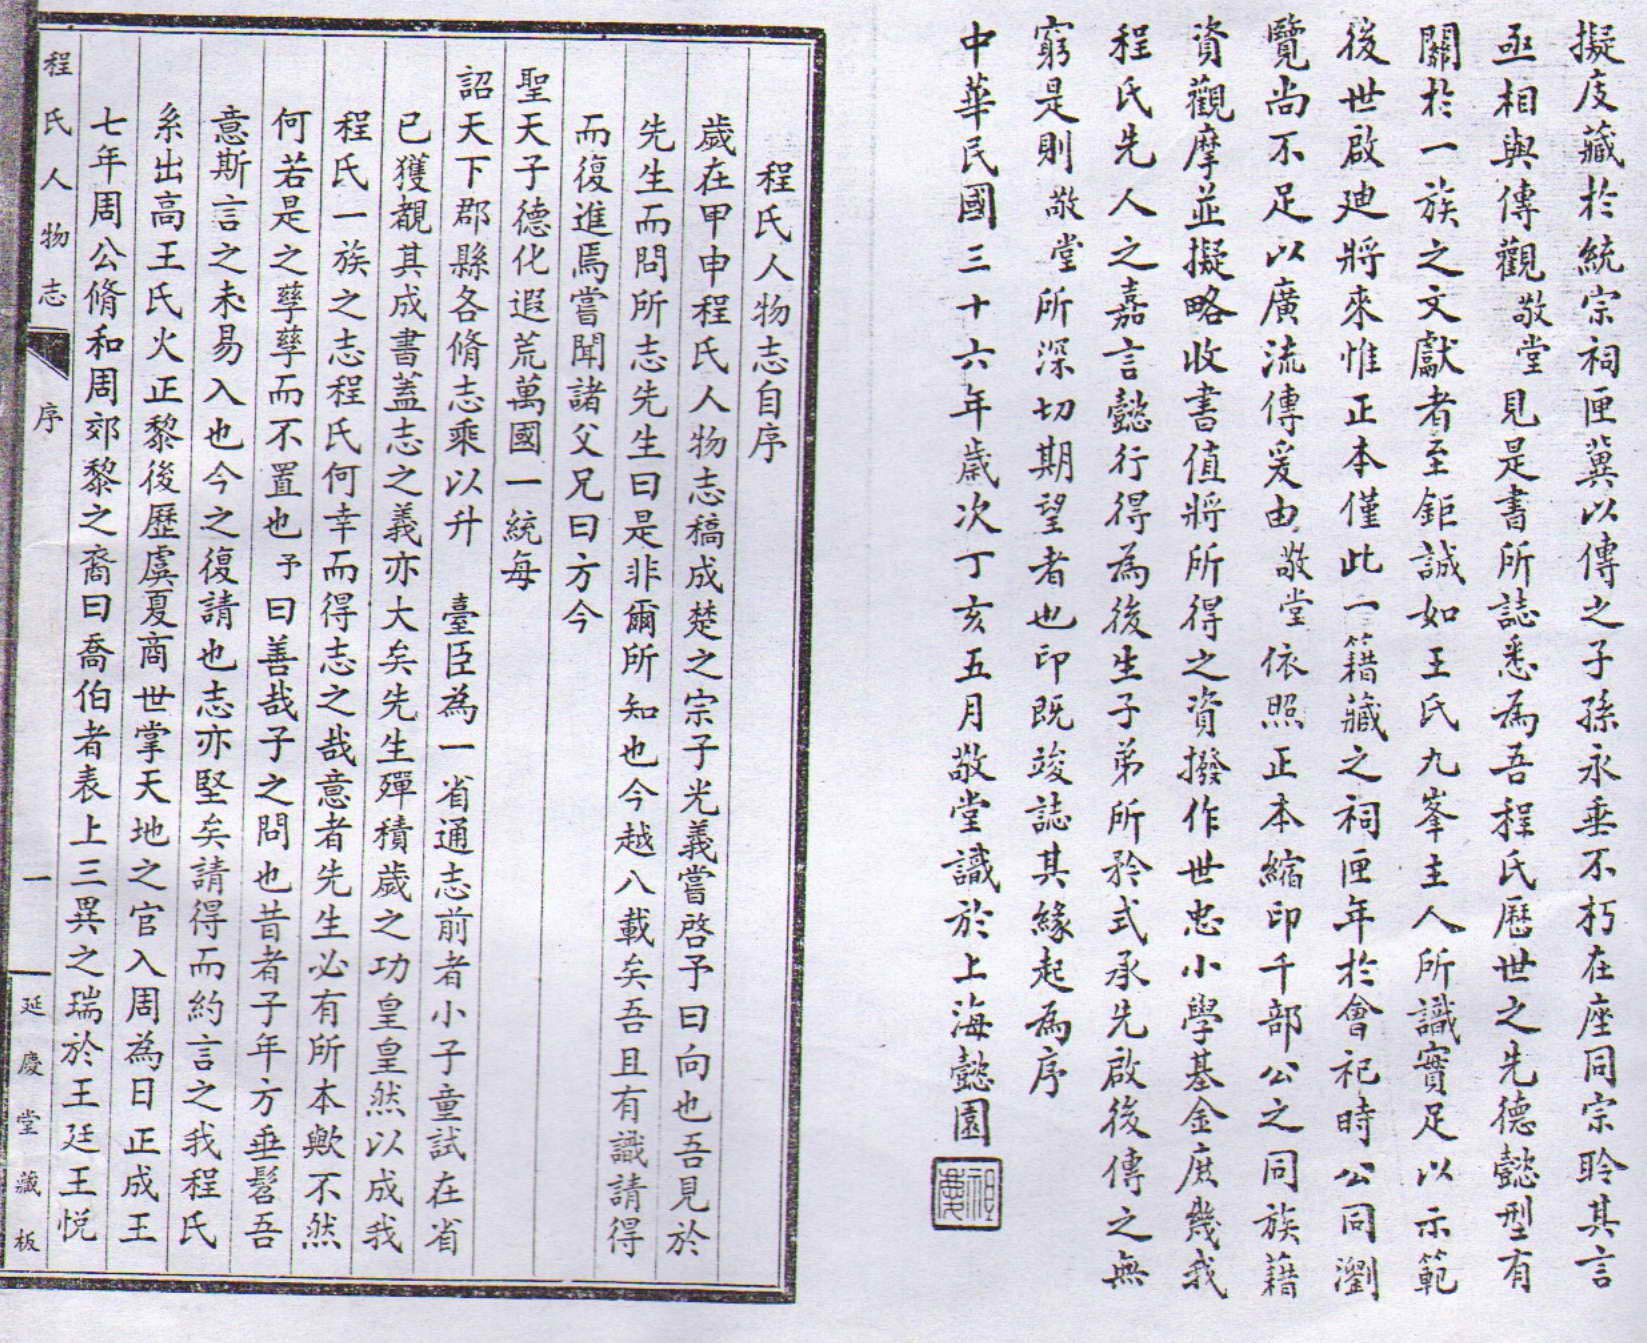 擬庋藏於統宗祠匣冀以傳之子孫永垂不朽在座同宗聆其言
亟相與傳觀敬堂見是書所誌悉為吾程氏歷世之先德懿型有
關於一族之文獻者至鉅誠如王氏九峯主人所識實足以示範
後世啟廸將來惟正本僅此一籍藏之祠匣年於會祀時公同瀏
覽尚不足以廣流傳爰由敬堂依照正本縮印千部公之同族藉
資觀摩並擬略收書值將所得之資撥作世忠小學基金庶幾我
程氏先人之嘉言懿行得為後生子弟所矜式承先啟後傳之無
窮是則敬堂所深切期望者也印既竣誌其緣起為序
中華民國三十六年歲次丁亥五月敬堂識於上海懿園
祖慶
程氏人物志自序
歲在甲申程氏人物志稿成楚之宗子光義嘗啓予曰向也吾見於
先生而問所志先生曰是非爾所知也今越八載矣吾且有識請得
而復進焉嘗聞諸父兄曰方今
聖天子德化遐荒萬國一統每
詔天下郡縣各脩志乘以升　臺臣為一省通志前者小子童試在省
已獲覩其成書蓋志之義亦大矣先生殫積歲之功皇皇然以成我
程氏一族之志程氏何幸而得志之哉意者先生必有所本歟不然
何若是之孳孳而不置也予曰善哉子之問也昔者子年方垂髫吾
意斯言之未易入也今之復請也志亦堅矣請得而約言之我程氏
系出高王氏火正黎後歷虞夏商世掌天地之官入周為日正成王
七年周公脩和周郊黎之裔曰喬伯者表上三異之瑞於王廷王悅
程氏人物志
序
一
延慶堂藏板